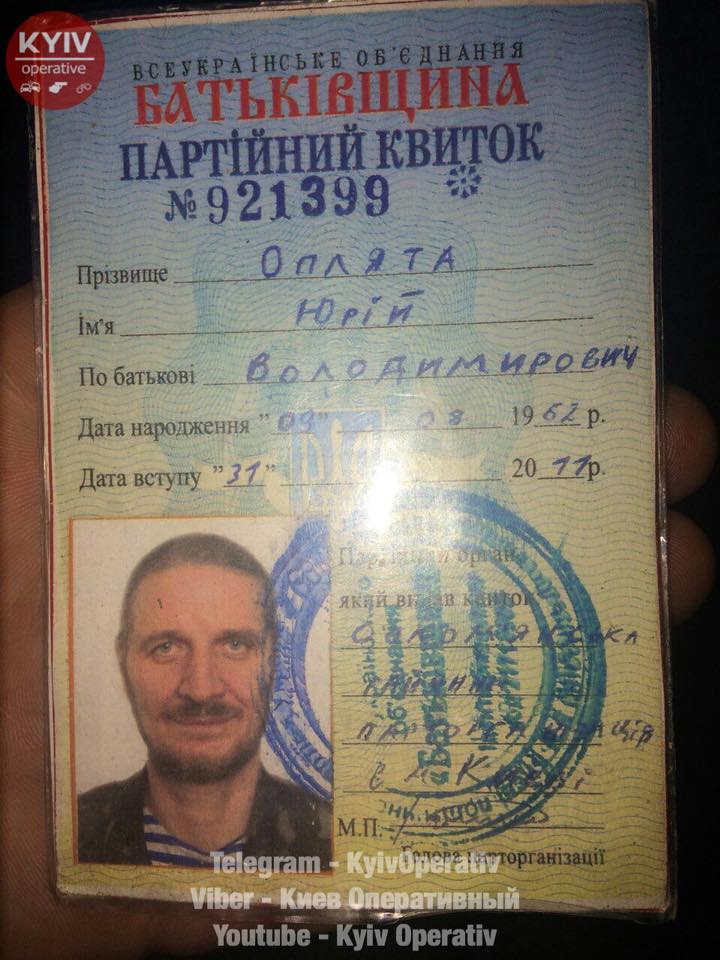 KYIV
operative
ВСЕУКРАЇНСЬКЕ ОБ'ЄДНАННЯ
БАТЬКІВЩИНА
ПАРТІЙНИЙ КВИТОК
№ 921399
Прізвище Оплята
Ім'я Юрій
По батькові Володимирович
Дата народження "09" 08 1962 р.
Дата вступу "31" 2011р.
Партійний орган,
який видав квиток
Солом'янська
районна
парторганізація
М.П.
Голова парторганізації
Telegram - KyivOperativ
Viber - Киев Оперативный
Youtube - Kyiv Operativ